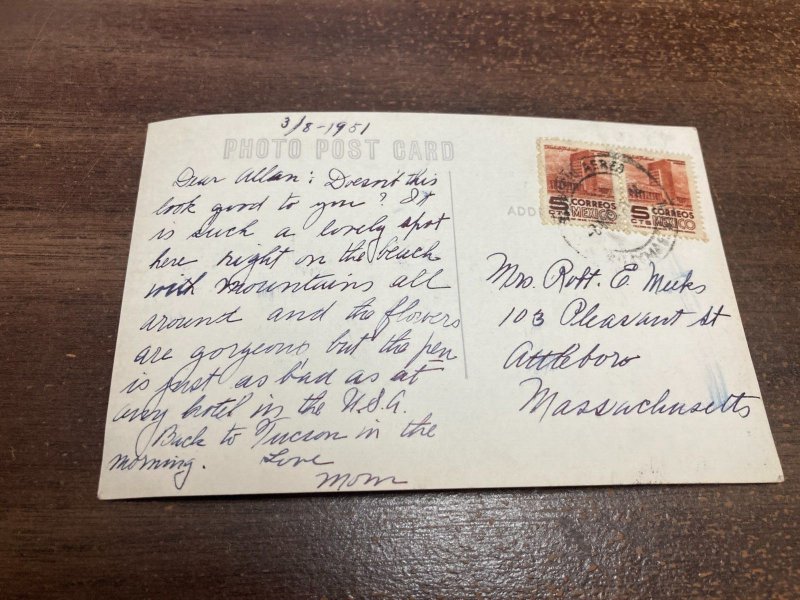 3/8-1951
PHOTO POST CARD
Dear Allan: Doesn't this
look good to you? It
is such a lovely spot
here right on the beach
with mountains all
around and the flowers
are gorgeous but the pen
is just as bad as at
any hotel in the U.S.A.
Back to Tucson in the
morning. Love
Mom
5 CORREOS 5 CORREOS
CTS MEXICO CTS MEXICO
ADD
Mrs. Robt. E. Meeks
103 Pleasant St
Attleboro
Massachusetts